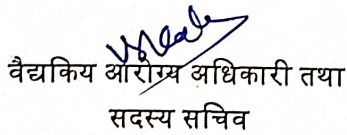 वैद्यकिय आरोग्य अधिकारी तथा
सदस्य सचिव